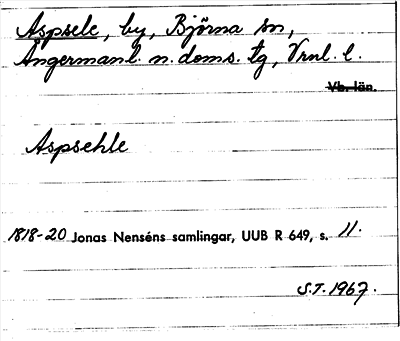 Aspsele, by, Björna sn,
Ångermanl. n. doms. tg, Vrnl. l.
Vb. län.
Aspsehle
1818-20 Jonas Nenséns samlingar, UUB R 649, s. 11.
S.T. 1967.